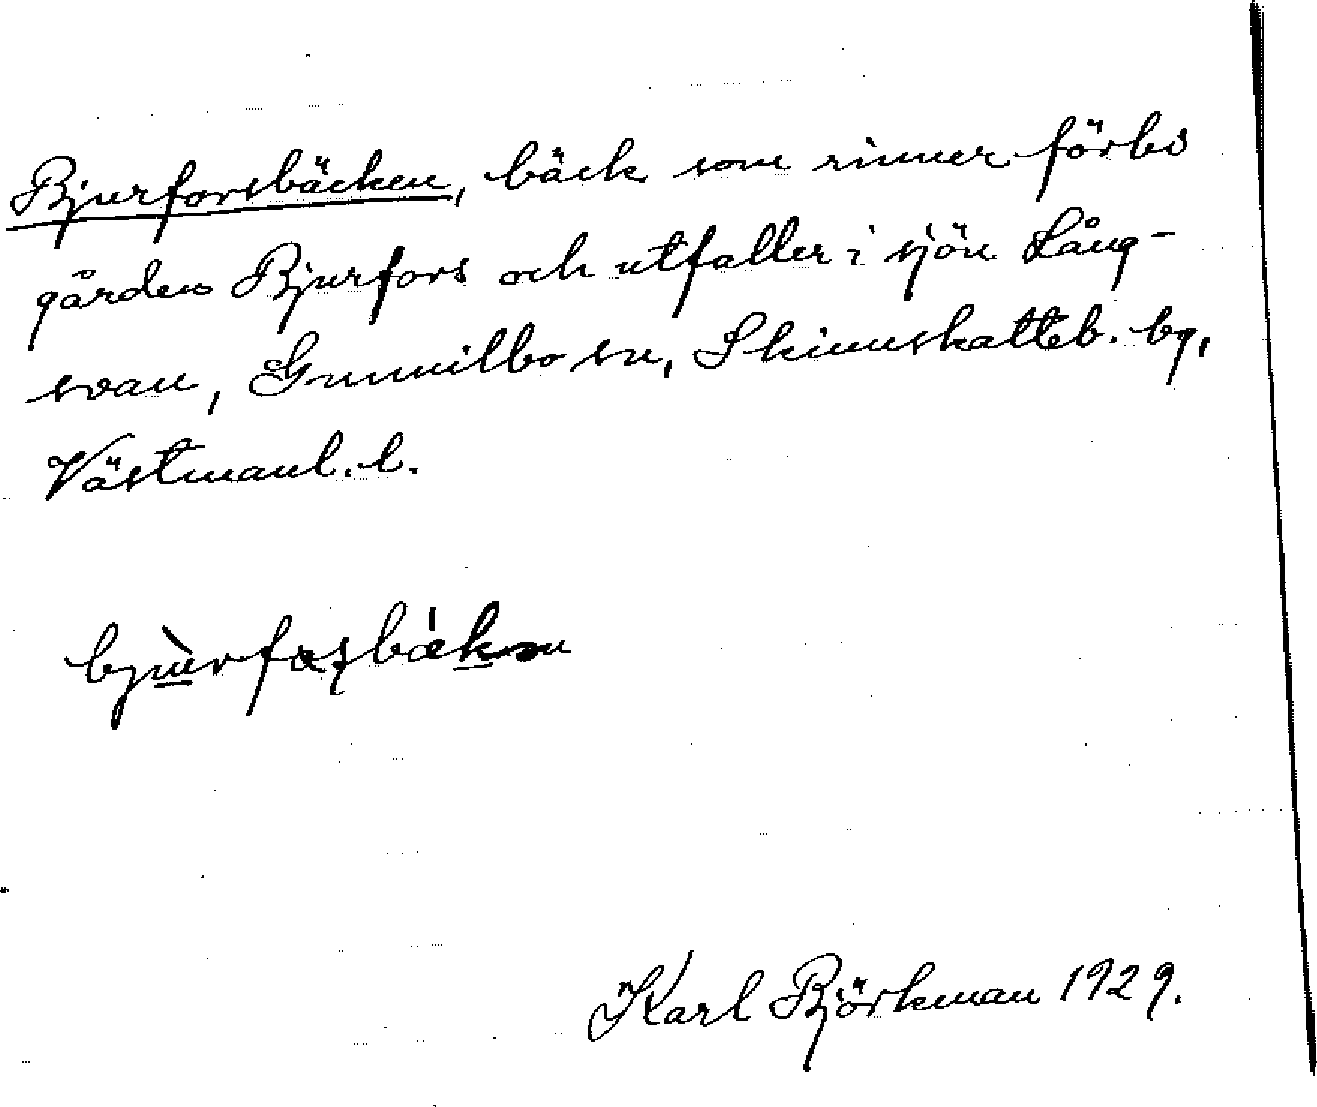 Bjurforsbäcken, bäck som rinner förbi
gården Bjurfors och utfaller i sjön Lång-
svan, Gunnilbo sn, Skinnskatteb. bg,
Västmanl. l.
bjùrfɷșbækən
Karl Björkman 1929.